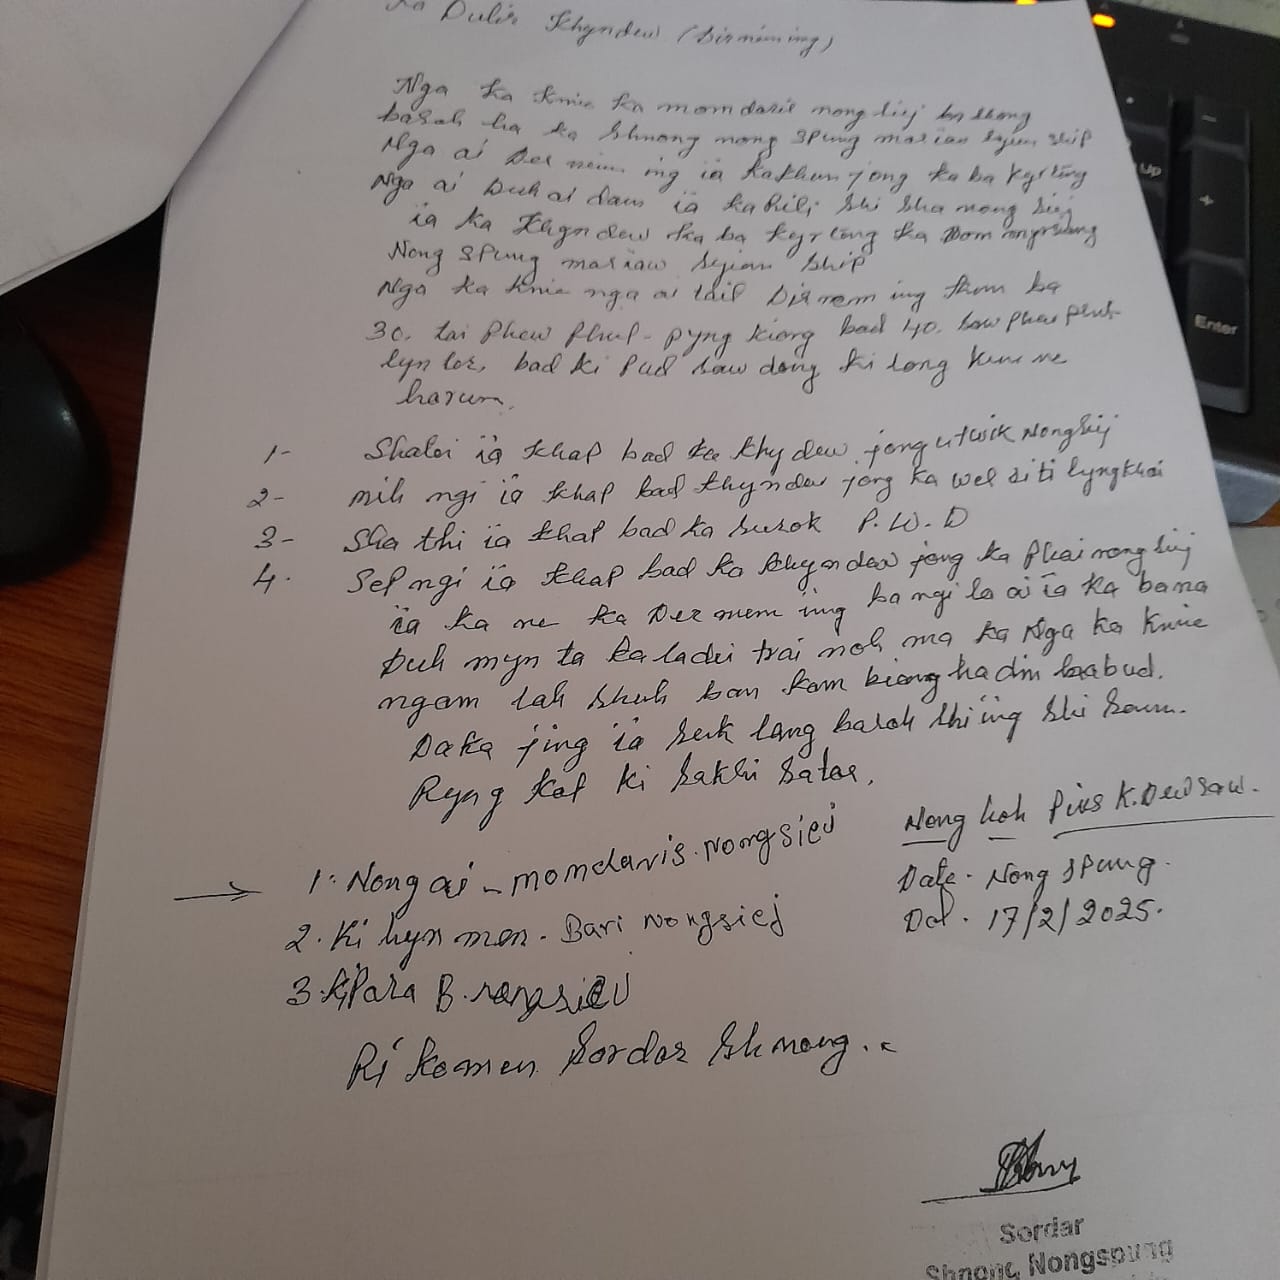 Ka Dulir Khyndew (dirnéming)
Nga Ka Knie Ka momdaris nongsiej ba shong
barah ha ka Shnong nong spung mariaw syiem ship
Nga ai Der nem ing ia Ka Khun jong ka ba kyrteng
Nga ai Duh ai dam ia ka hili shi sha nong siej
ia Ka Khyndew Ka ba kyrteng Ka Dom
Nong spung mariaw syiem Ship
Nga Ka Knie nga ai tail Dirnem ing thum ba
30. lai Phew Phut - pyng kiang bad 40. saw Phew Phut
lyn ter, bad ki Pud saw dong ki long kum ne
harum.
1- Shatei ia Khap bad Ka Khy dew jong utwik Nongsiej
2- mih ngi ia Khap bad Khyndew jong Ka wel siti lyngkhoi
3- Sha thi ia Khap bad Ka surok P.W.D
4. Sep ngi ia Khap bad Ka Khyndew jong Ka Phai nong siej
ia Ka ne Ka Der nem ing ba ngi la ai ia Ka bana
Duh myn ta Ka ladei trai noh ma Ka Nga Ka Knie
ngam lah Shuh ban Kam kiang hadin baabud.
Da Ka jing ia seik lang baroh Shi iing Shi Saum.
Ryng Kat Ki Sakhi Satar.
Nong hoh Pius K. Dewsaw.
→ 1. Nong ai - momdaris. Nongsiej
Date. Nong spung.
2. Ki hyn men. Bari Nongsiej
Dat. 17/2/2025.
3. Ki Para B. nongsiej
Ri Komen Sordar Shnong..
Sordar
Shnong Nongspung